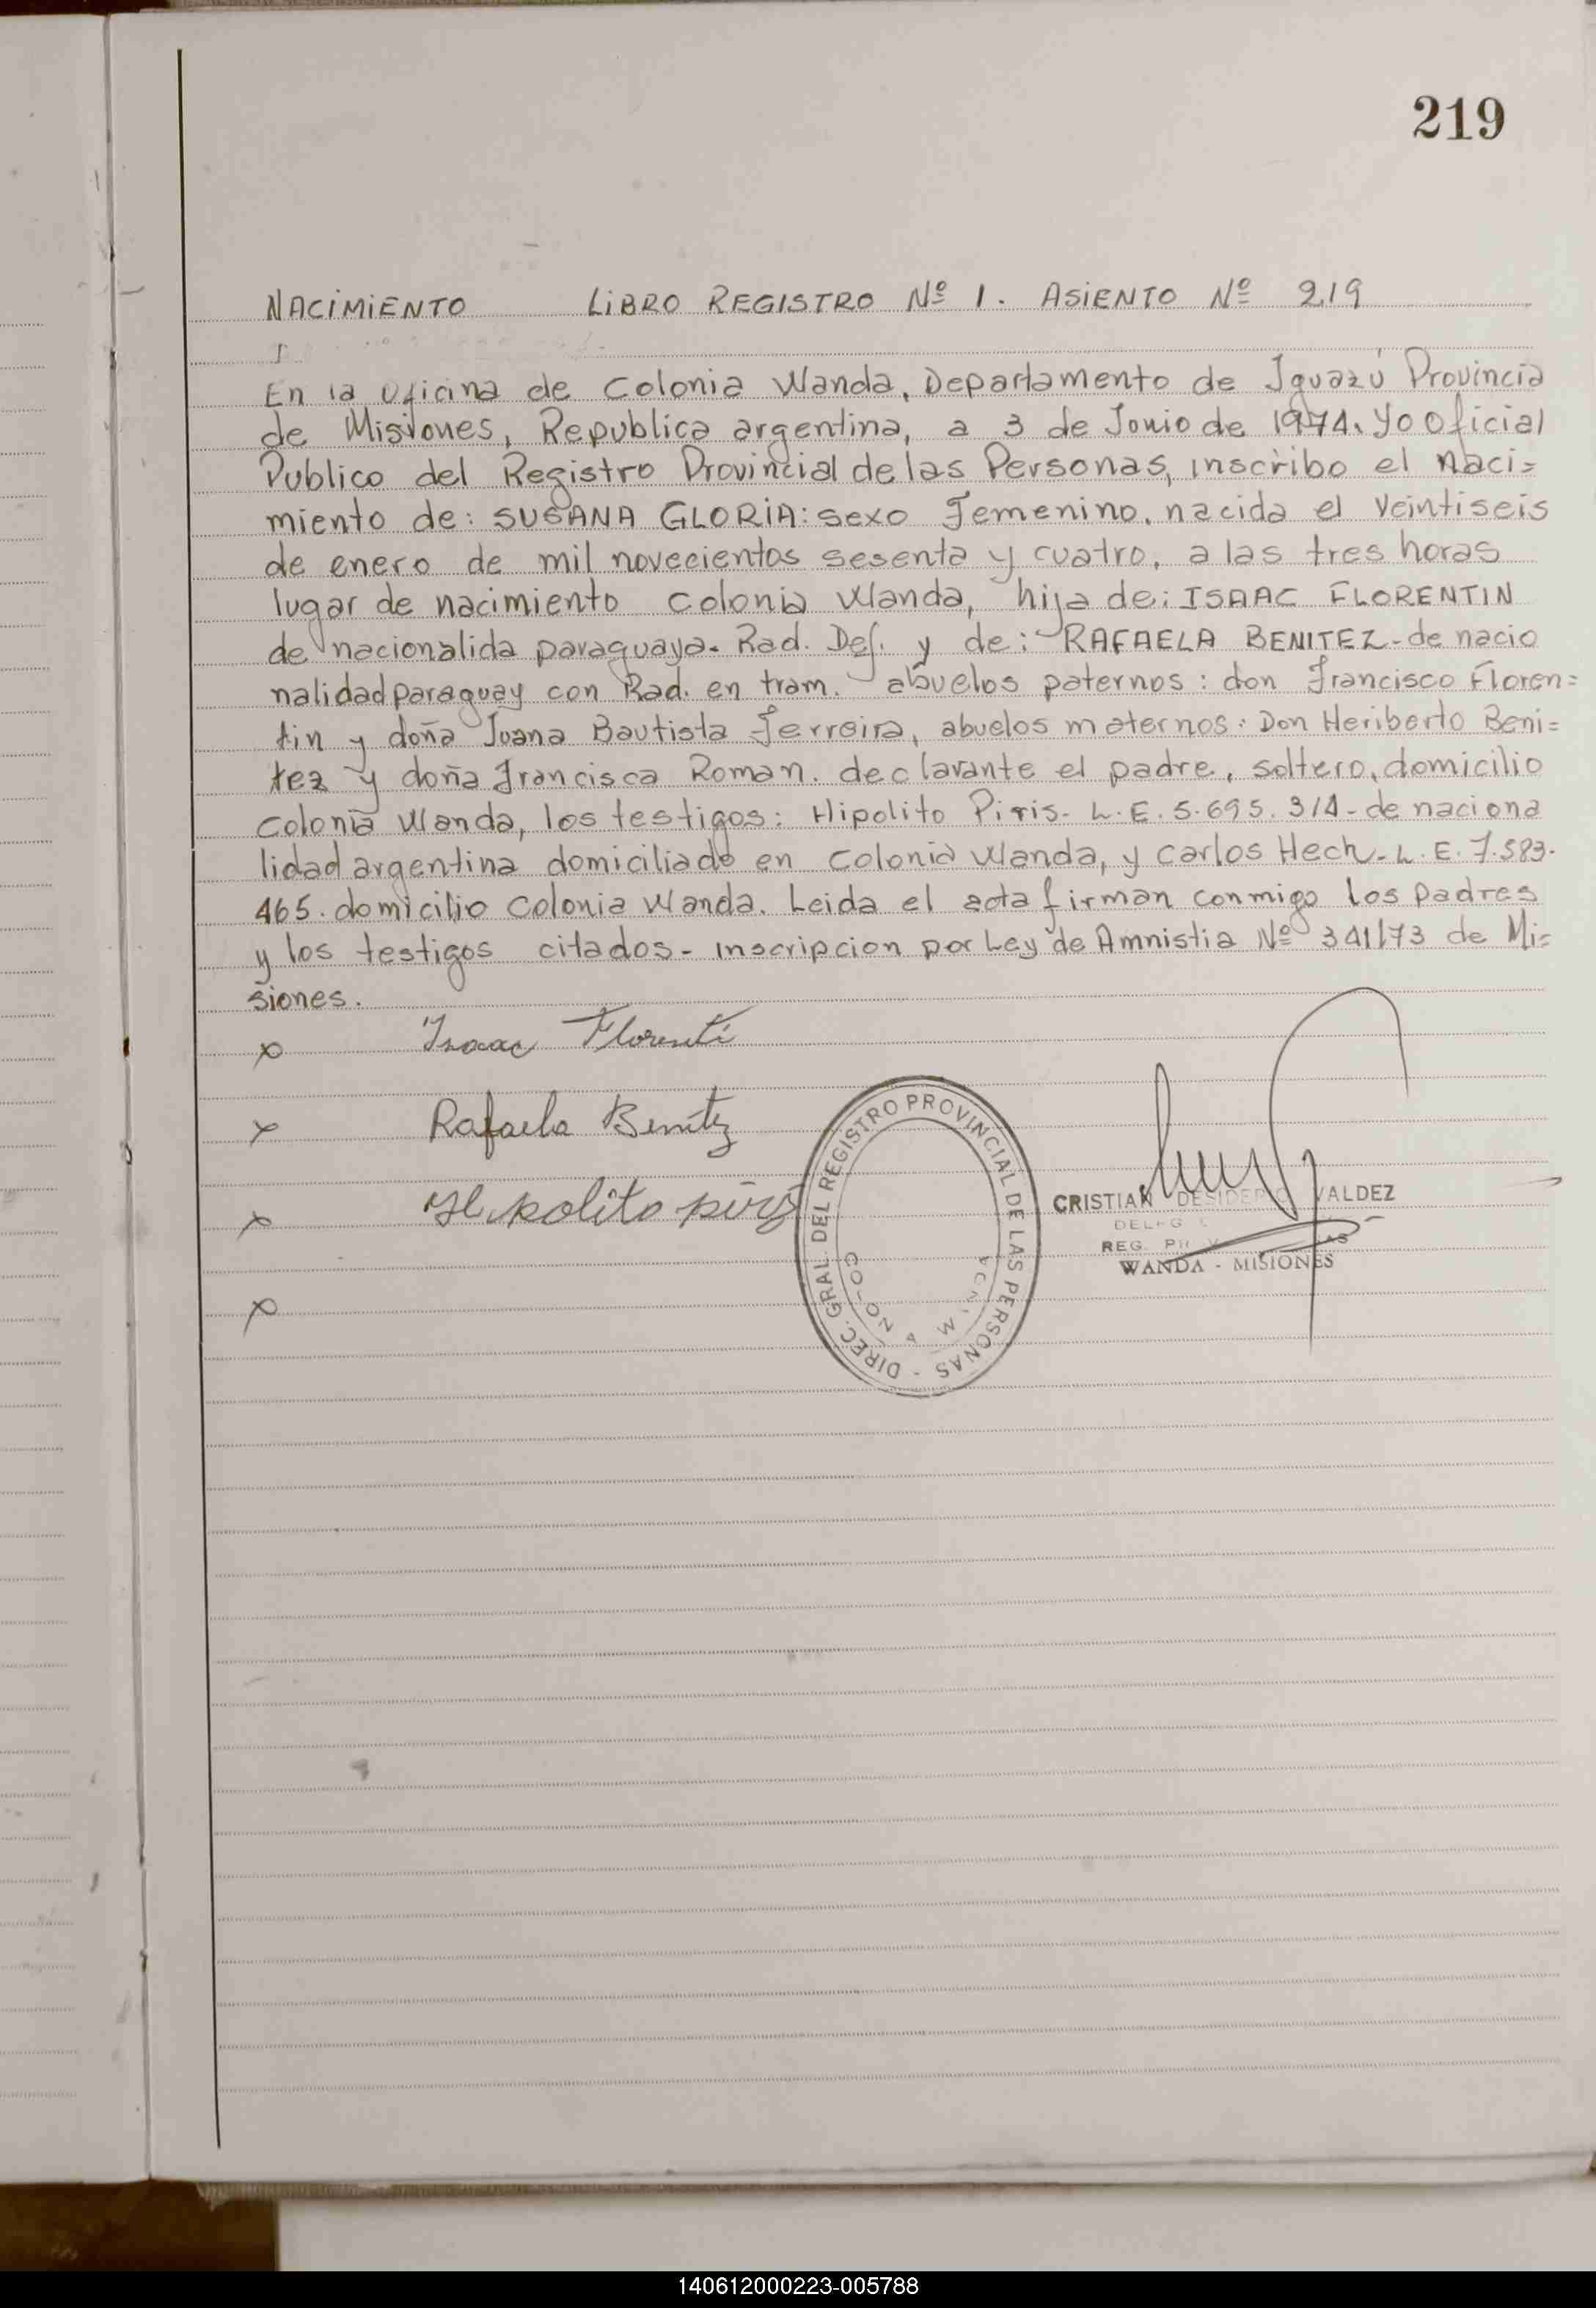 219
NACIMIENTO LIBRO REGISTRO Nº 1. ASIENTO Nº 219
En la oficina de Colonia Wanda, Departamento de Iguazú Provincia
de Misiones, Republica argentina, a 3 de Junio de 1974. Yo Oficial
Publico del Registro Provincial de las Personas, inscribo el naci=
miento de: SUSANA GLORIA: sexo Femenino. nacida el veintiseis
de enero de mil novecientos sesenta y cuatro, a las tres horas
lugar de nacimiento Colonia Wanda, hija de: ISAAC FLORENTIN
de nacionalida paraguaya. Rad. Def. y de: RAFAELA BENITEZ - de nacio
nalidad paraguay con Rad. en tram. abuelos paternos: don Francisco Floren=
tin y doña Juana Bautista Ferreira, abuelos maternos: Don Heriberto Beni=
tez y doña Francisca Roman. declarante el padre, soltero, domicilio
colonia Wanda, los testigos: Hipolito Piris - L.E. 5.695.314 - de naciona
lidad argentina domiciliado en Colonia Wanda, y Carlos Hech - L.E. 7.583.
465. domicilio Colonia Wanda. Leida el acta firman conmigo los padres
y los testigos citados - inscripcion por Ley de Amnistia Nº 341/73 de Mi=
siones.
x Isaac Florenti
x Rafaela Benitez
x Hipolito piris
x
DIREC. GRAL. DEL REGISTRO PROVINCIAL DE LAS PERSONAS -
COLONIA WANDA
CRISTIAN DESIDERIO VALDEZ
REG.
WANDA - MISIONES
140612000223-005788